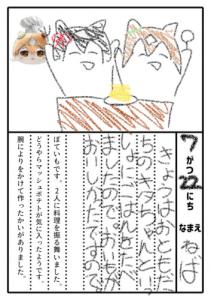 7がつ22にち
なまえ ねば
きょうはおともだ
ちのキタちゃんと!!
しょにごはんをたべ
ましたのでおいもが
おいしかったですので
ぽていもです 2人に料理を振る舞いました。
どうやらマッシュポテトが気に入ったようです。
腕によりをかけて作ったかいがありました。